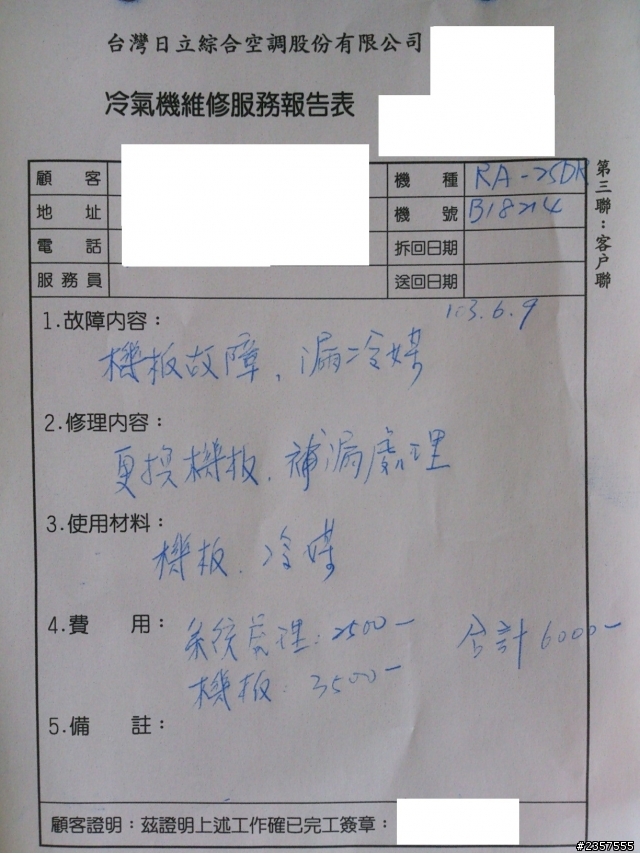 台灣日立綜合空調股份有限公司
冷氣機維修服務報告表
顧客
機種 RA-25DR
地址
機號 B18214
電話
拆回日期
服務員
送回日期
第三聯：客戶聯
103.6.9
1.故障內容：
機板故障、漏冷媒
2.修理內容：
更換機板、補漏處理
3.使用材料：
機板、冷媒
4.費用：
系統處理：2500-
合計6000-
機板：3500-
5.備註：
顧客證明：茲證明上述工作確已完工簽章：
#2357555